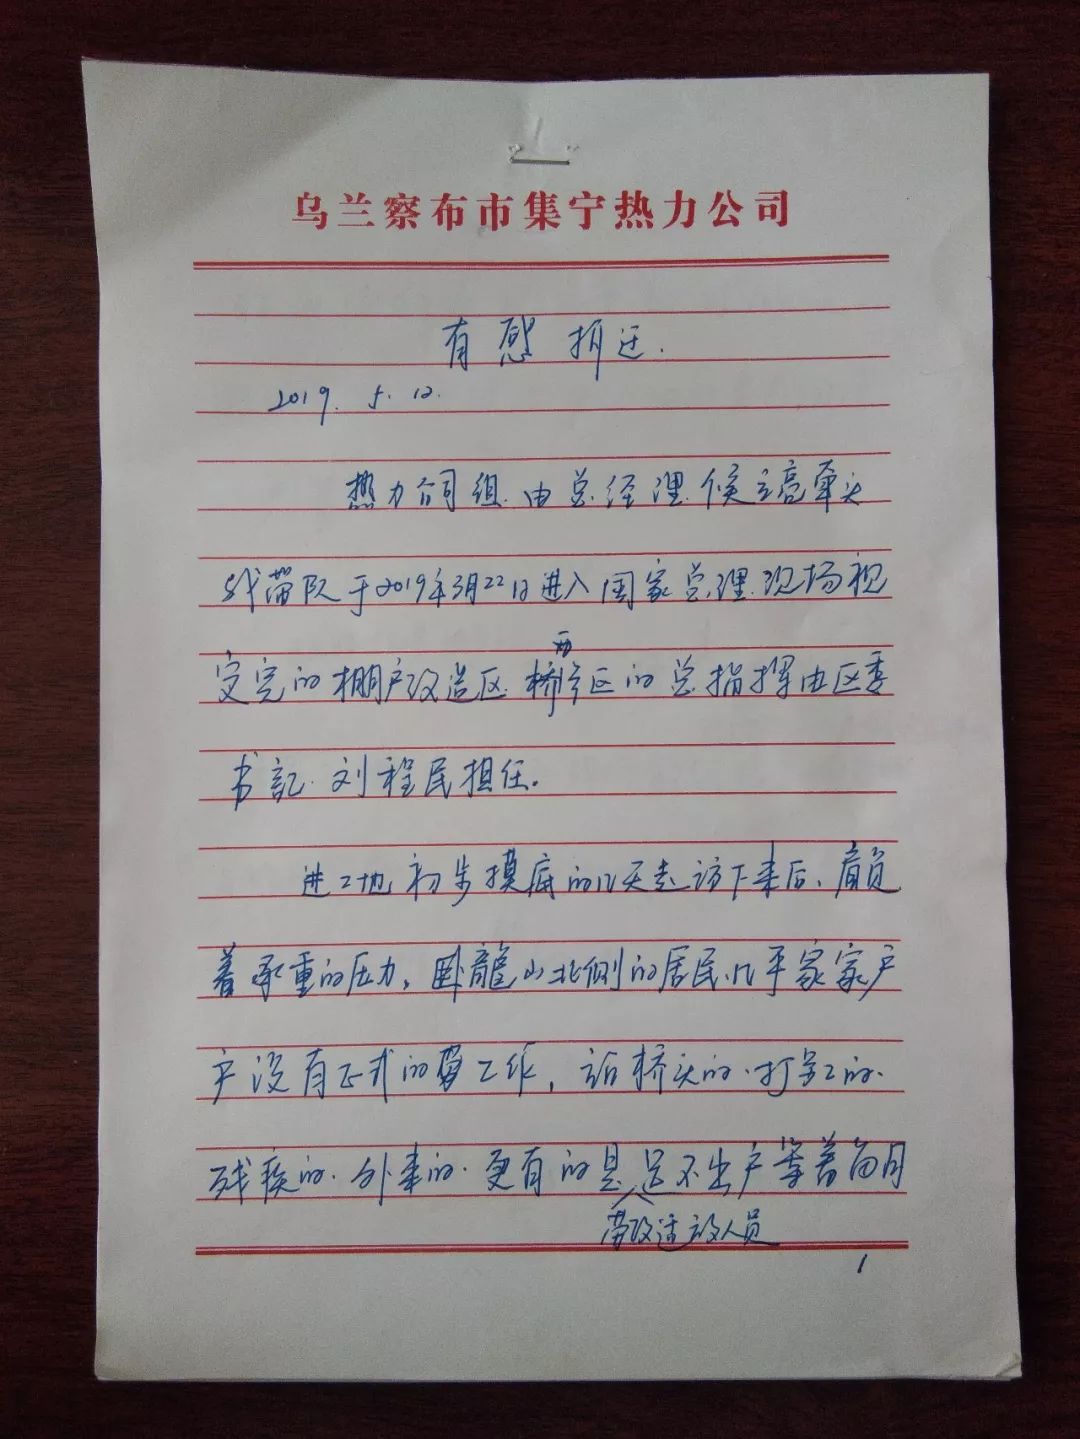 乌兰察布市集宁热力公司
有感拆迁.
2019. 5. 12.
热力公司组.由总经理.候立高牵头
我带队于2019年3月22日进入国家总理.现场视
定完的棚户改造区.桥西区的总指挥由区委
书記.刘程民担任。
进工地初步摸底的几天走访下来后、肩负
着承重的压力。卧龍山北侧的居民.几乎家家户
户没有正式的工作，站桥头的.打零工的.
残疾的.外来的.更有的是足不出户等着每月
劳改适放人员
1